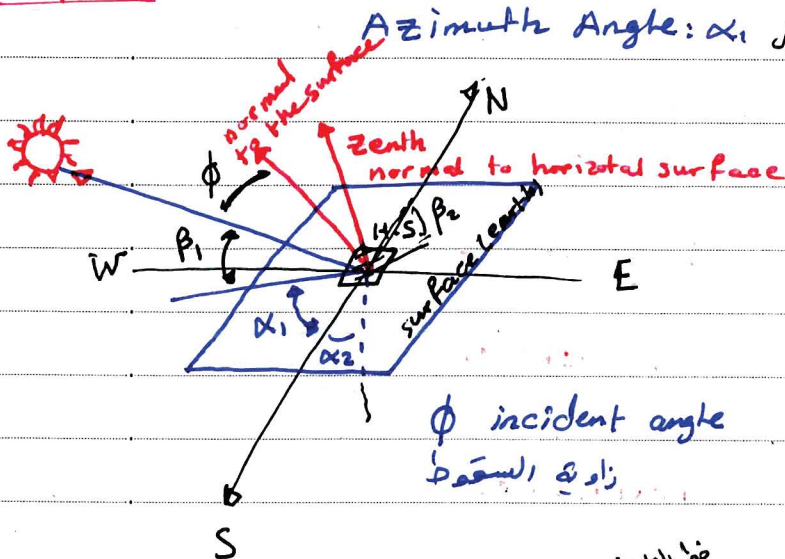 Azimuth Angle: α₁
N
normal
to the surface
Zenth
normal to horizotal surface
ϕ
β₁
H.S
β₂
W
E
surface (earth)
α₁
α₂
ϕ incident angle
زاوية السقوط
S